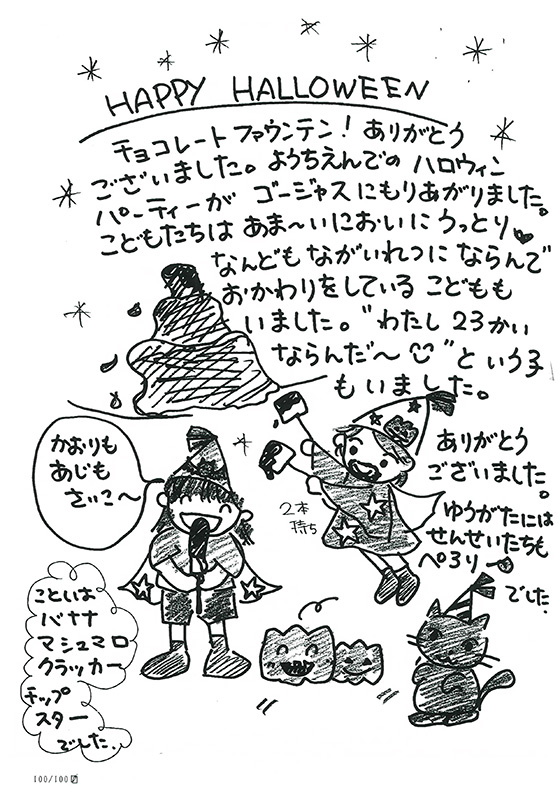 HAPPY HALLOWEEN
チョコレートファウンテン！ありがとう
ございました。ようちえんでのハロウィン
パーティーが ゴージャスにもりあがりました。
こどもたちは あま〜いにおいに うっとり
なんども ながいれつに ならんで
おかわりをしている こどもも
いました。"わたし 23かい
ならんだ〜"という子
もいました。
かおりも
あじも
さいこ〜
2本
持ち
ありがとう
ございました。
ゆうがたには
せんせいたちも
ペろリー
でした。
ことしは
バナナ
マシュマロ
クラッカー
チップ
スター
でした。
100/100